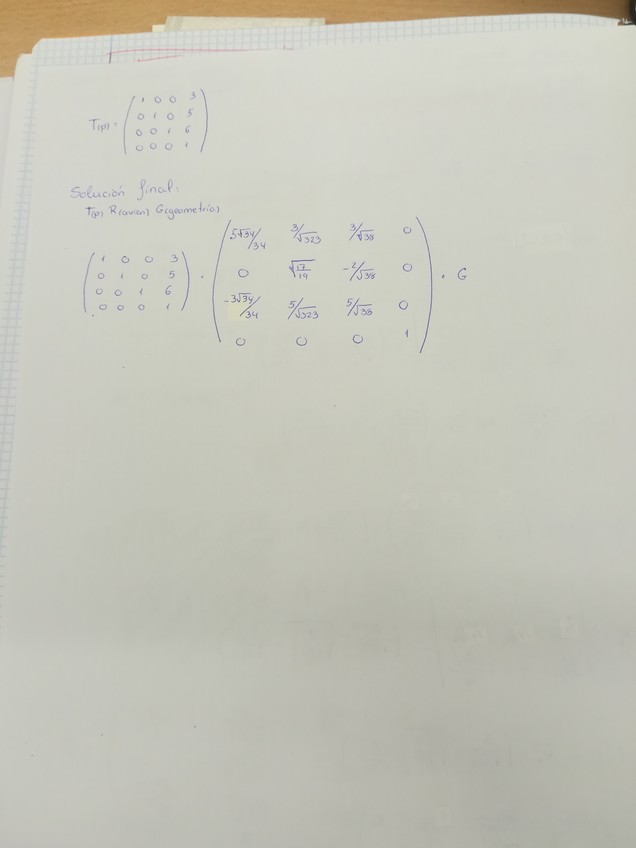 T(p) = ( 1 0 0 3
0 1 0 5
0 0 1 6
0 0 0 1 )
Solución final:
T(p) R(avion) G(geometria)
( 1 0 0 3
0 1 0 5
0 0 1 6
0 0 0 1 ) · ( 5√34/34 3/√323 3/√38 0
0 √17/19 -2/√38 0
-3√34/34 5/√323 5/√38 0
0 0 0 1 ) · G